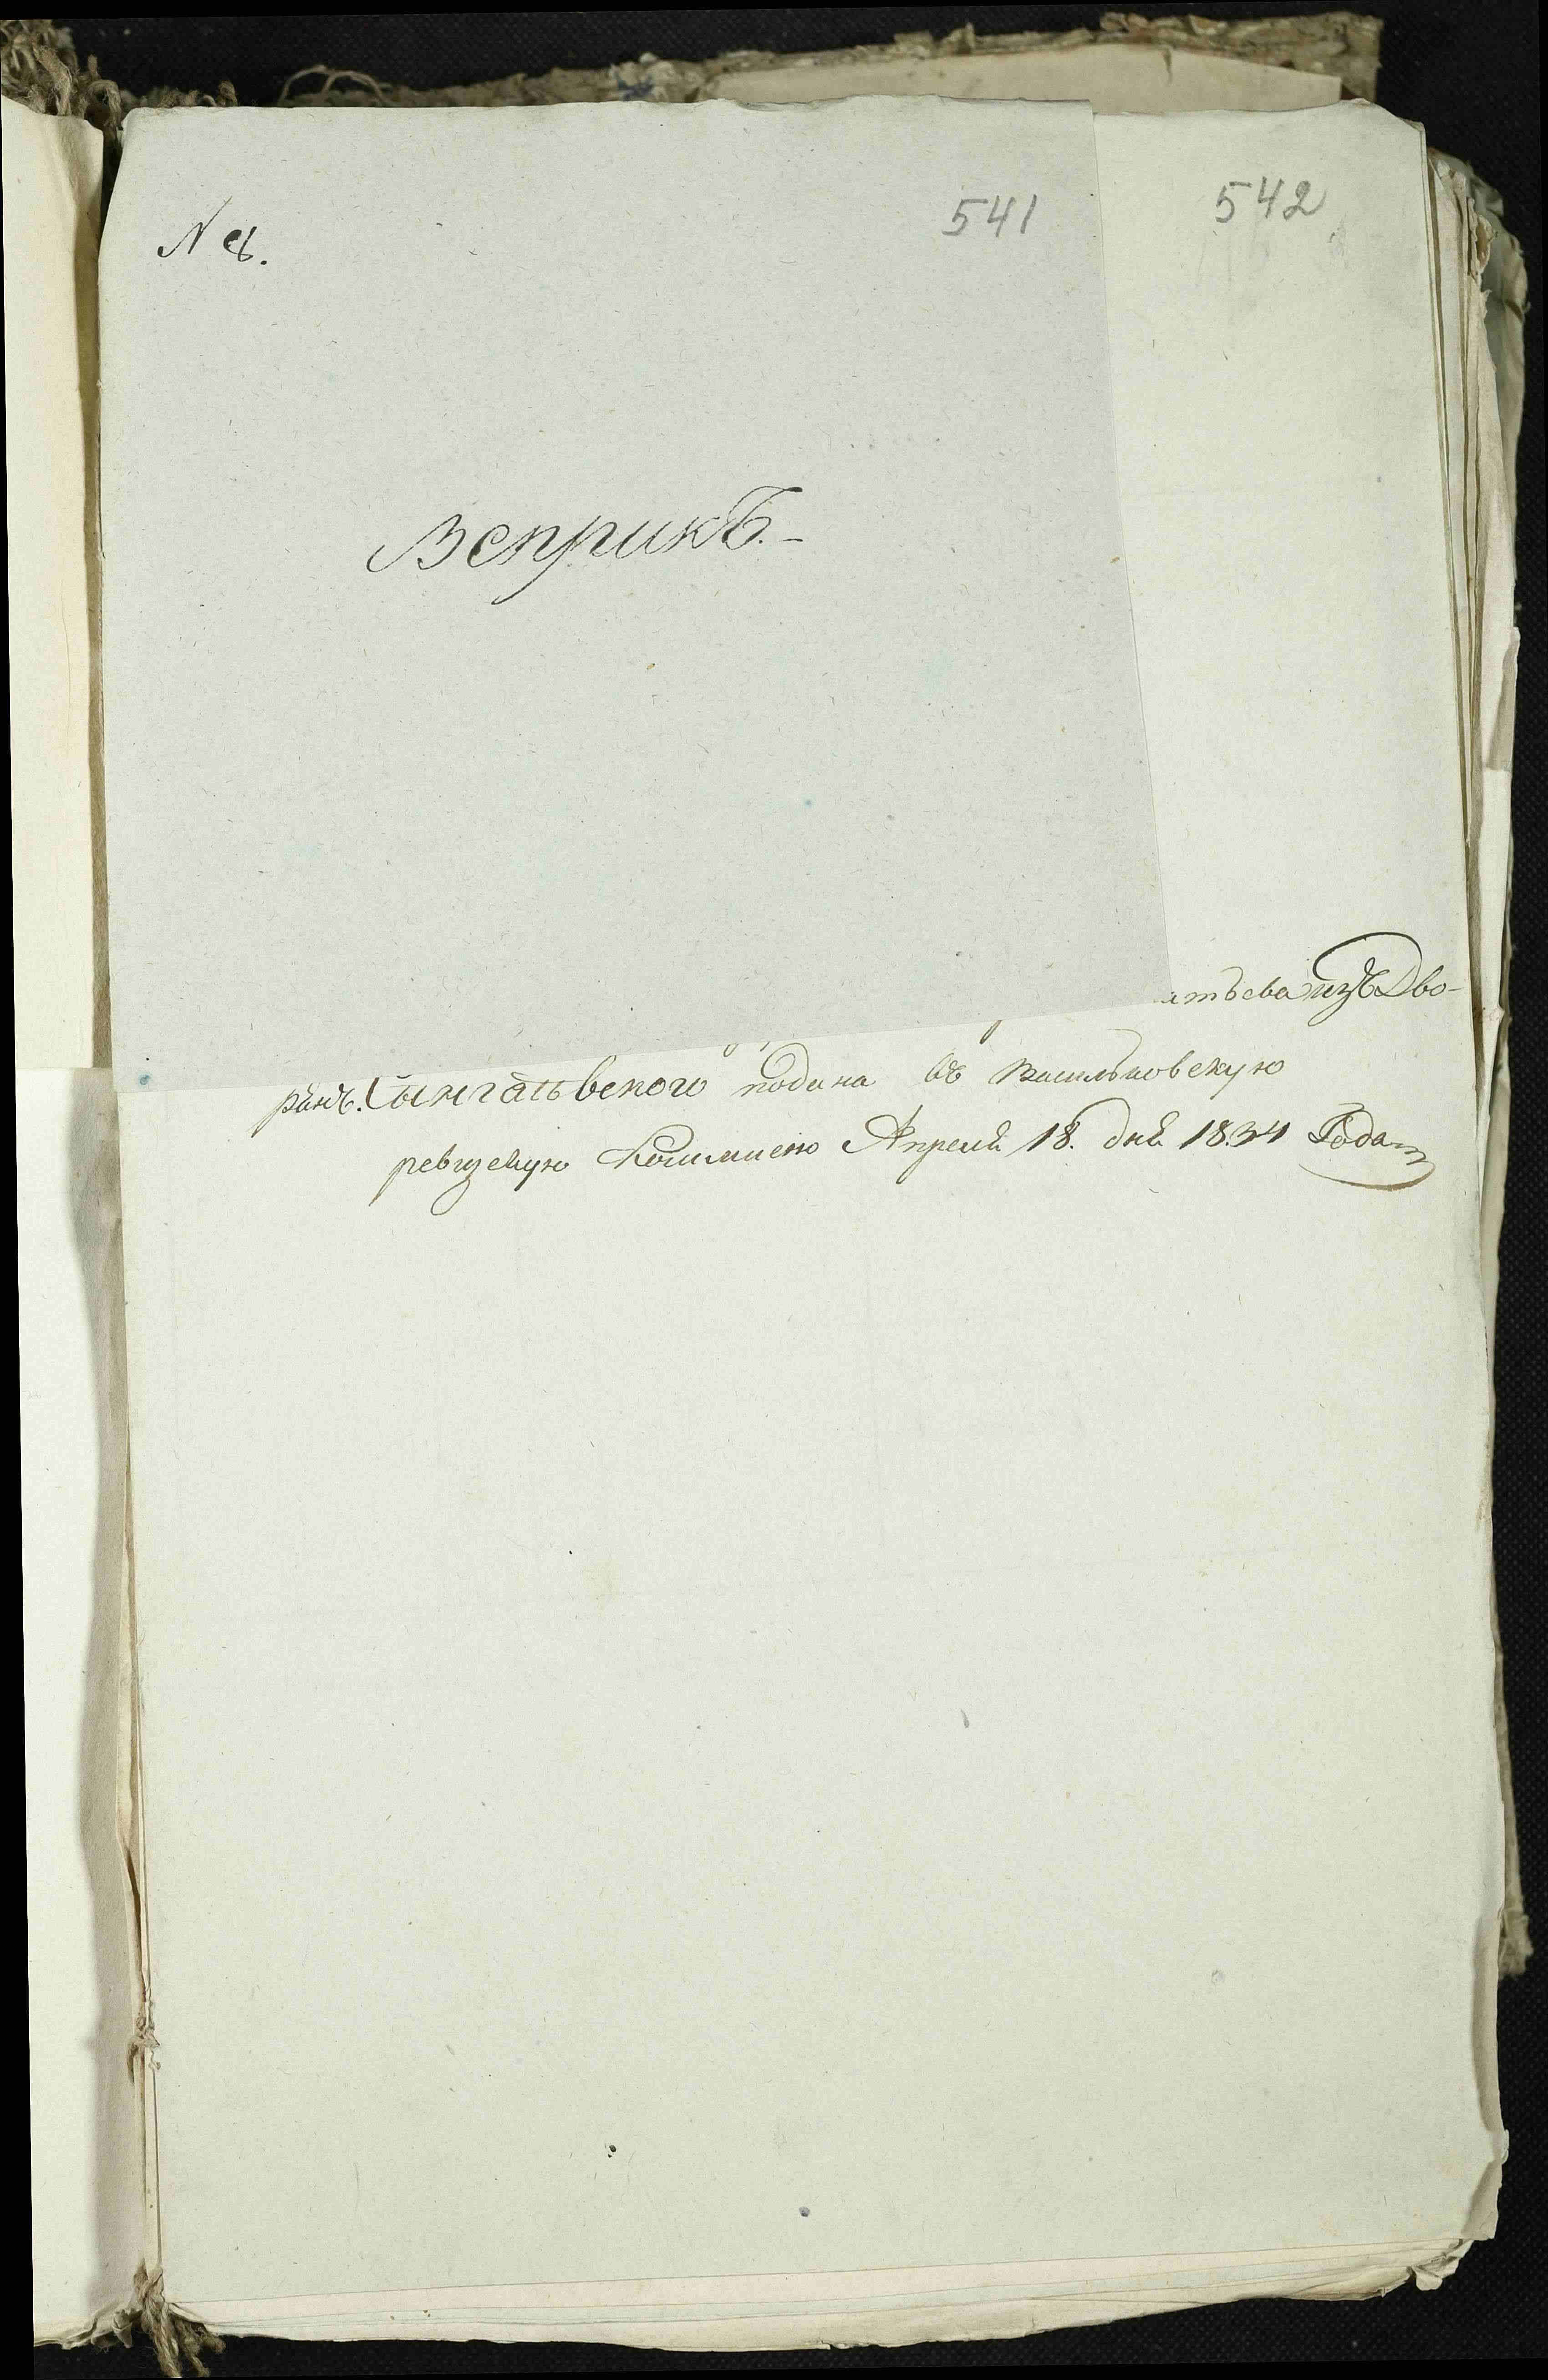 N 8.
541
542
Веприкъ.-
атьева изъ Дво-
рянъ. подана въ Васильковскую
ревизскую Коммисію Апреля 18. дня 1834 Года